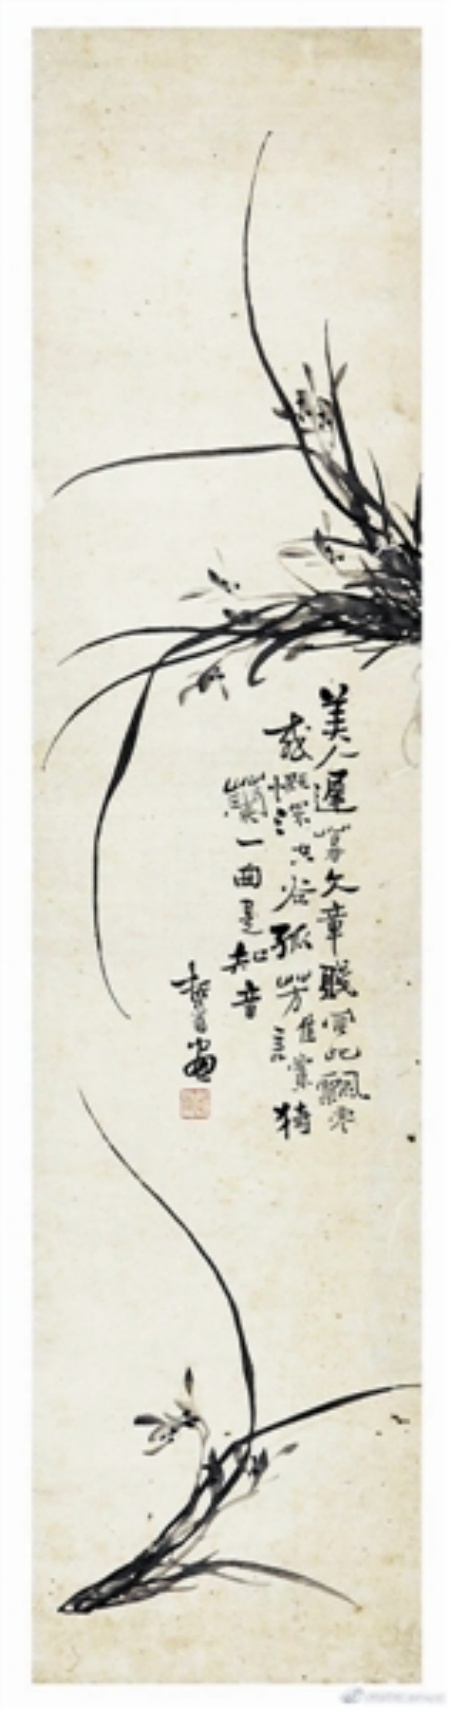 美人遲暮文章賤此飄零
感慨深空谷孤芳誰賞猗
蘭一曲是知音
畫